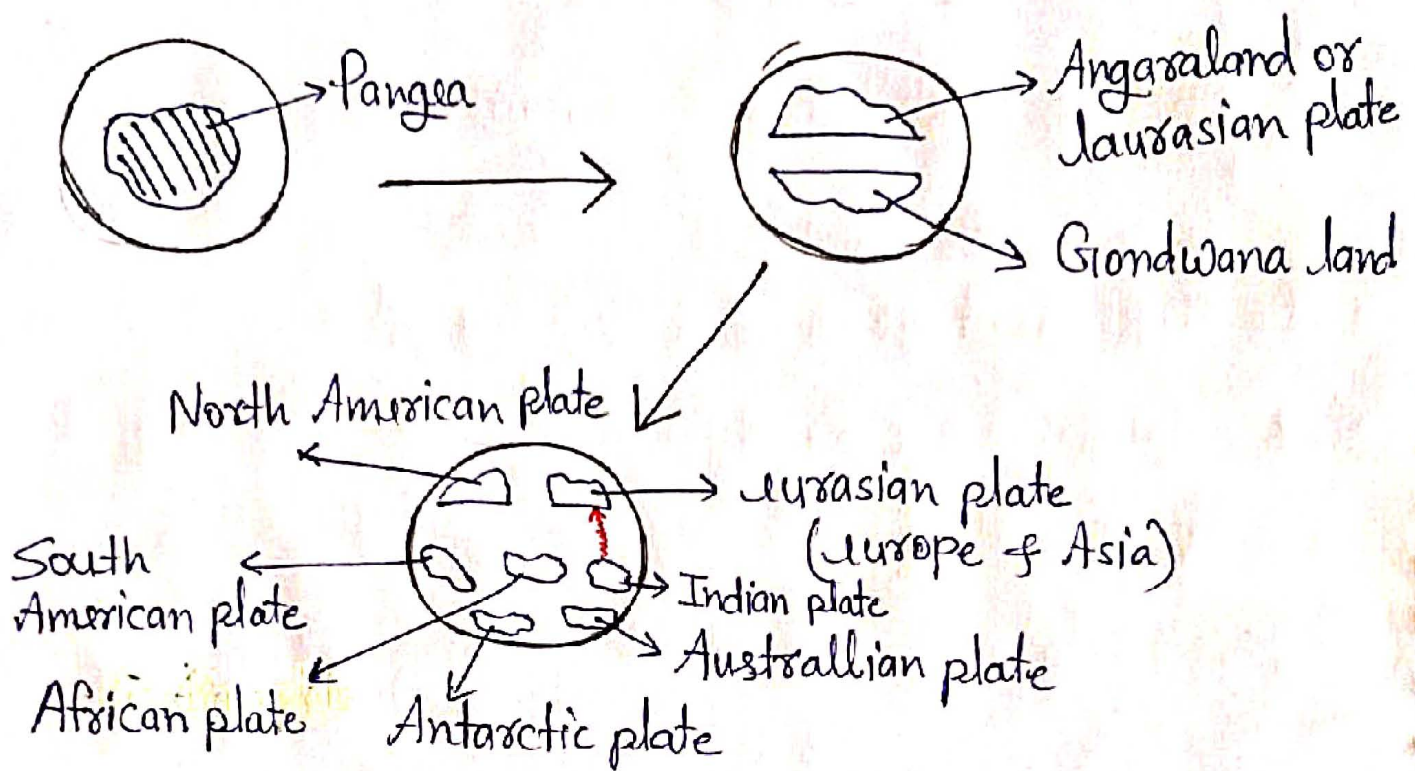 Pangea
Angaraland or
laurasian plate
Gondwana land
North American plate
eurasian plate
(europe & Asia)
South
American plate
Indian plate
Australlian plate
African plate
Antarctic plate